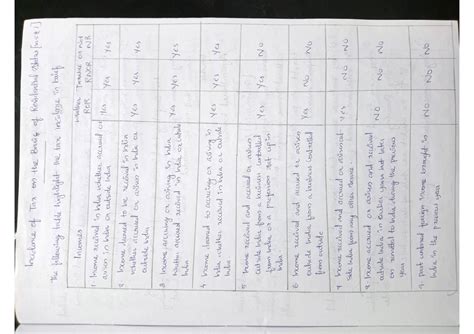 Incidence of Tax on the Basis of Residential Status [
The following table highlight the tax incidence in brief
Incomes | Whether Taxable or Not
ROR | RNOR | NR
1. Income received in India whether accrued or
in India or outside India | Yes | Yes | Yes
2. Income deemed to be received in India
whether accrued or arisen in India or
outside India | Yes | Yes | Yes
3. Income accruing or arising in India
whether received in India or outside
India | Yes | Yes | Yes
4. Income deemed to accruing or arising in
India whether received in India or outside
India | Yes | Yes | Yes
5. Income received and accrued or arisen
outside India from a business controlled
from India or a profession set up in
India | Yes | Yes | No
6. Income received and accrued or arisen
outside India from a business controlled
from outside | Yes | No | No
7. Income received and accrued or arisen out
side India from any other source | Yes | No | No
8. Income accrued or arisen and received
outside India in earlier years but later
on remitted to India during the previous
year | No | No | No
9. Past untaxed foreign income brought in
India in the previous year | No | No | No